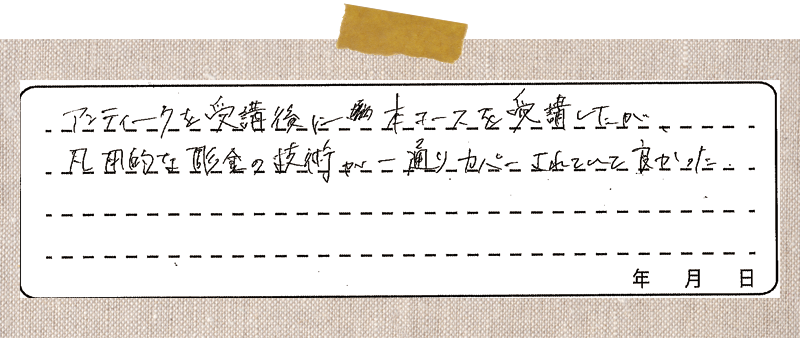 アンティークを受講後に本コースを受講したが、
凡用的な彫金の技術が一通りカバーされていて良かった.
年 月 日